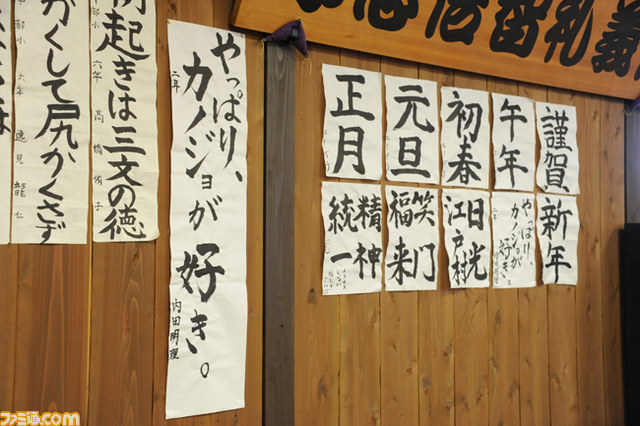 義礼智信忠
謹賀
午年
初春
元旦
正月
新年
やっぱり、
カノジョが
好き。
日光
江戸村
笑門
福来
精神
統一
やっぱり、カノジョが好き。
二年
内田明理
起きは三文の徳
六年 高橋侑子
かくして尻かくさず
六年 逸見龍仁
ファミ通.com